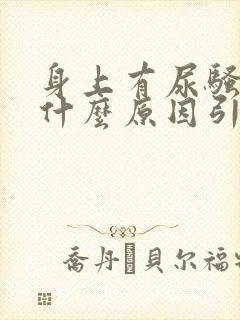 身上有尿騷
什麼原因引
喬丹 貝尔福特